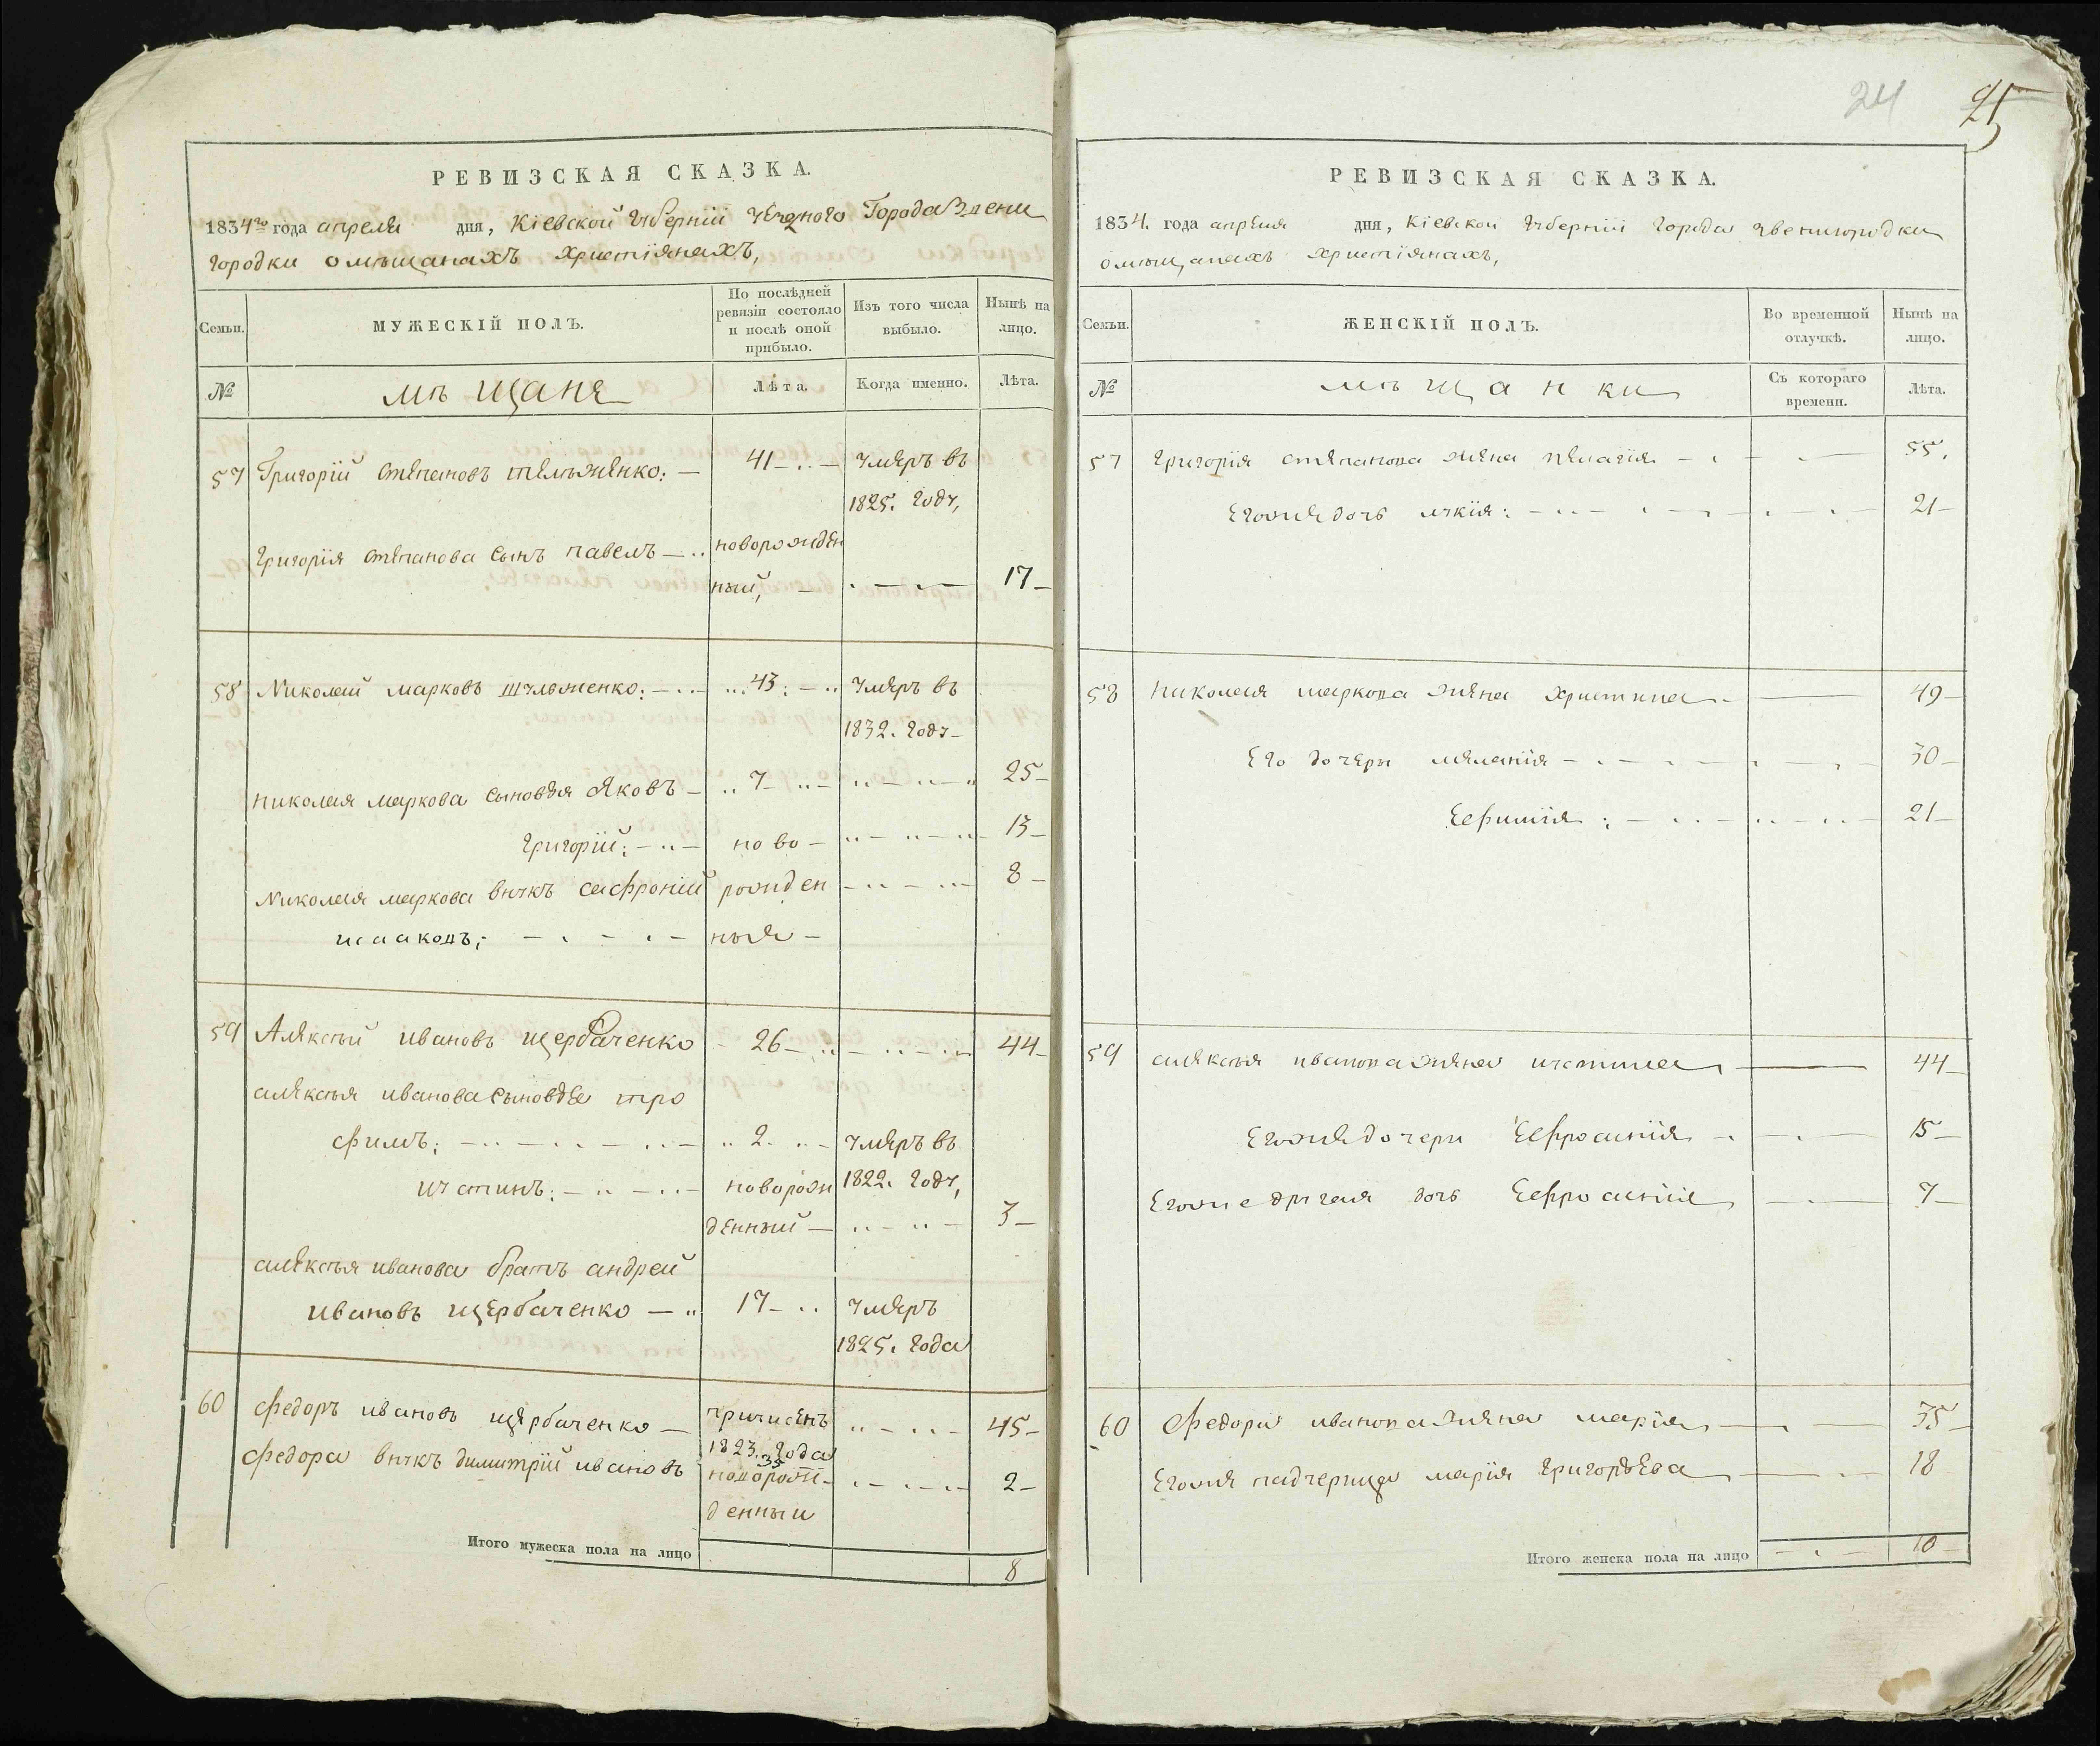 РЕВИЗСКАЯ СКАЗКА.
1834го года апреля дня, Кіевской Губерніи уезного Города Звени
городки омъщанахъ христіянахъ,
Семьи. МУЖЕСКІЙ ПОЛЪ. По послѣдней ревизіи состояло и послѣ оной прибыло. Изъ того числа выбыло. Нынѣ на лицо.
№ мѣщане Лѣта. Когда именно. Лѣта.
57 Григорій Степановъ — 41 умеръ въ
1825. году,
Григорія Степанова сынъ павелъ — новорожден
ный, 17
58 Николай марковъ — 43 умеръ въ
1832. году
николая маркова сыновья Яковъ — 7 25
григорій: — ново 13
Николая маркова внукъ сафроній рожден 8
исааковъ; ныя
59 Алексѣй ивановъ щербаченко 26 44
алексѣя иванова сыновье тро
фимъ; 2 умеръ въ
устинъ: новорож 1822. году,
денный 3
алексѣя иванова братъ андрей
ивановъ щербаченко — 17 умеръ
1825. года
60 федоръ ивановъ щербаченко — причисенъ 45
1823. года
35
федора внукъ димитрій ивановъ новорож- 2
денныи
Итого мужеска пола на лицо 8
24 25
РЕВИЗСКАЯ СКАЗКА.
1834. года апреля дня, Кіевской Губерніи Города звенигородки
омѣщанахъ христіянахъ,
Семьи. ЖЕНСКІЙ ПОЛЪ. Во временной отлучкѣ. Нынѣ на лицо.
№ мѣщанки Съ котораго времени. Лѣта.
57 григорія степанова жена пелагія 55.
Егожа дочь лукія: 21
58 николая маркова жена христина 49
Его дочери меланія 30
Ефимія; 21
59 алексѣя иванова жена устина 44
Егоже дочери Ефросинія 15
Егоже другая дочь Ефросинія 7
60 федора иванова жена марія 35
Егоже падчерица марія григорьева 18
Итого женска пола на лицо 10